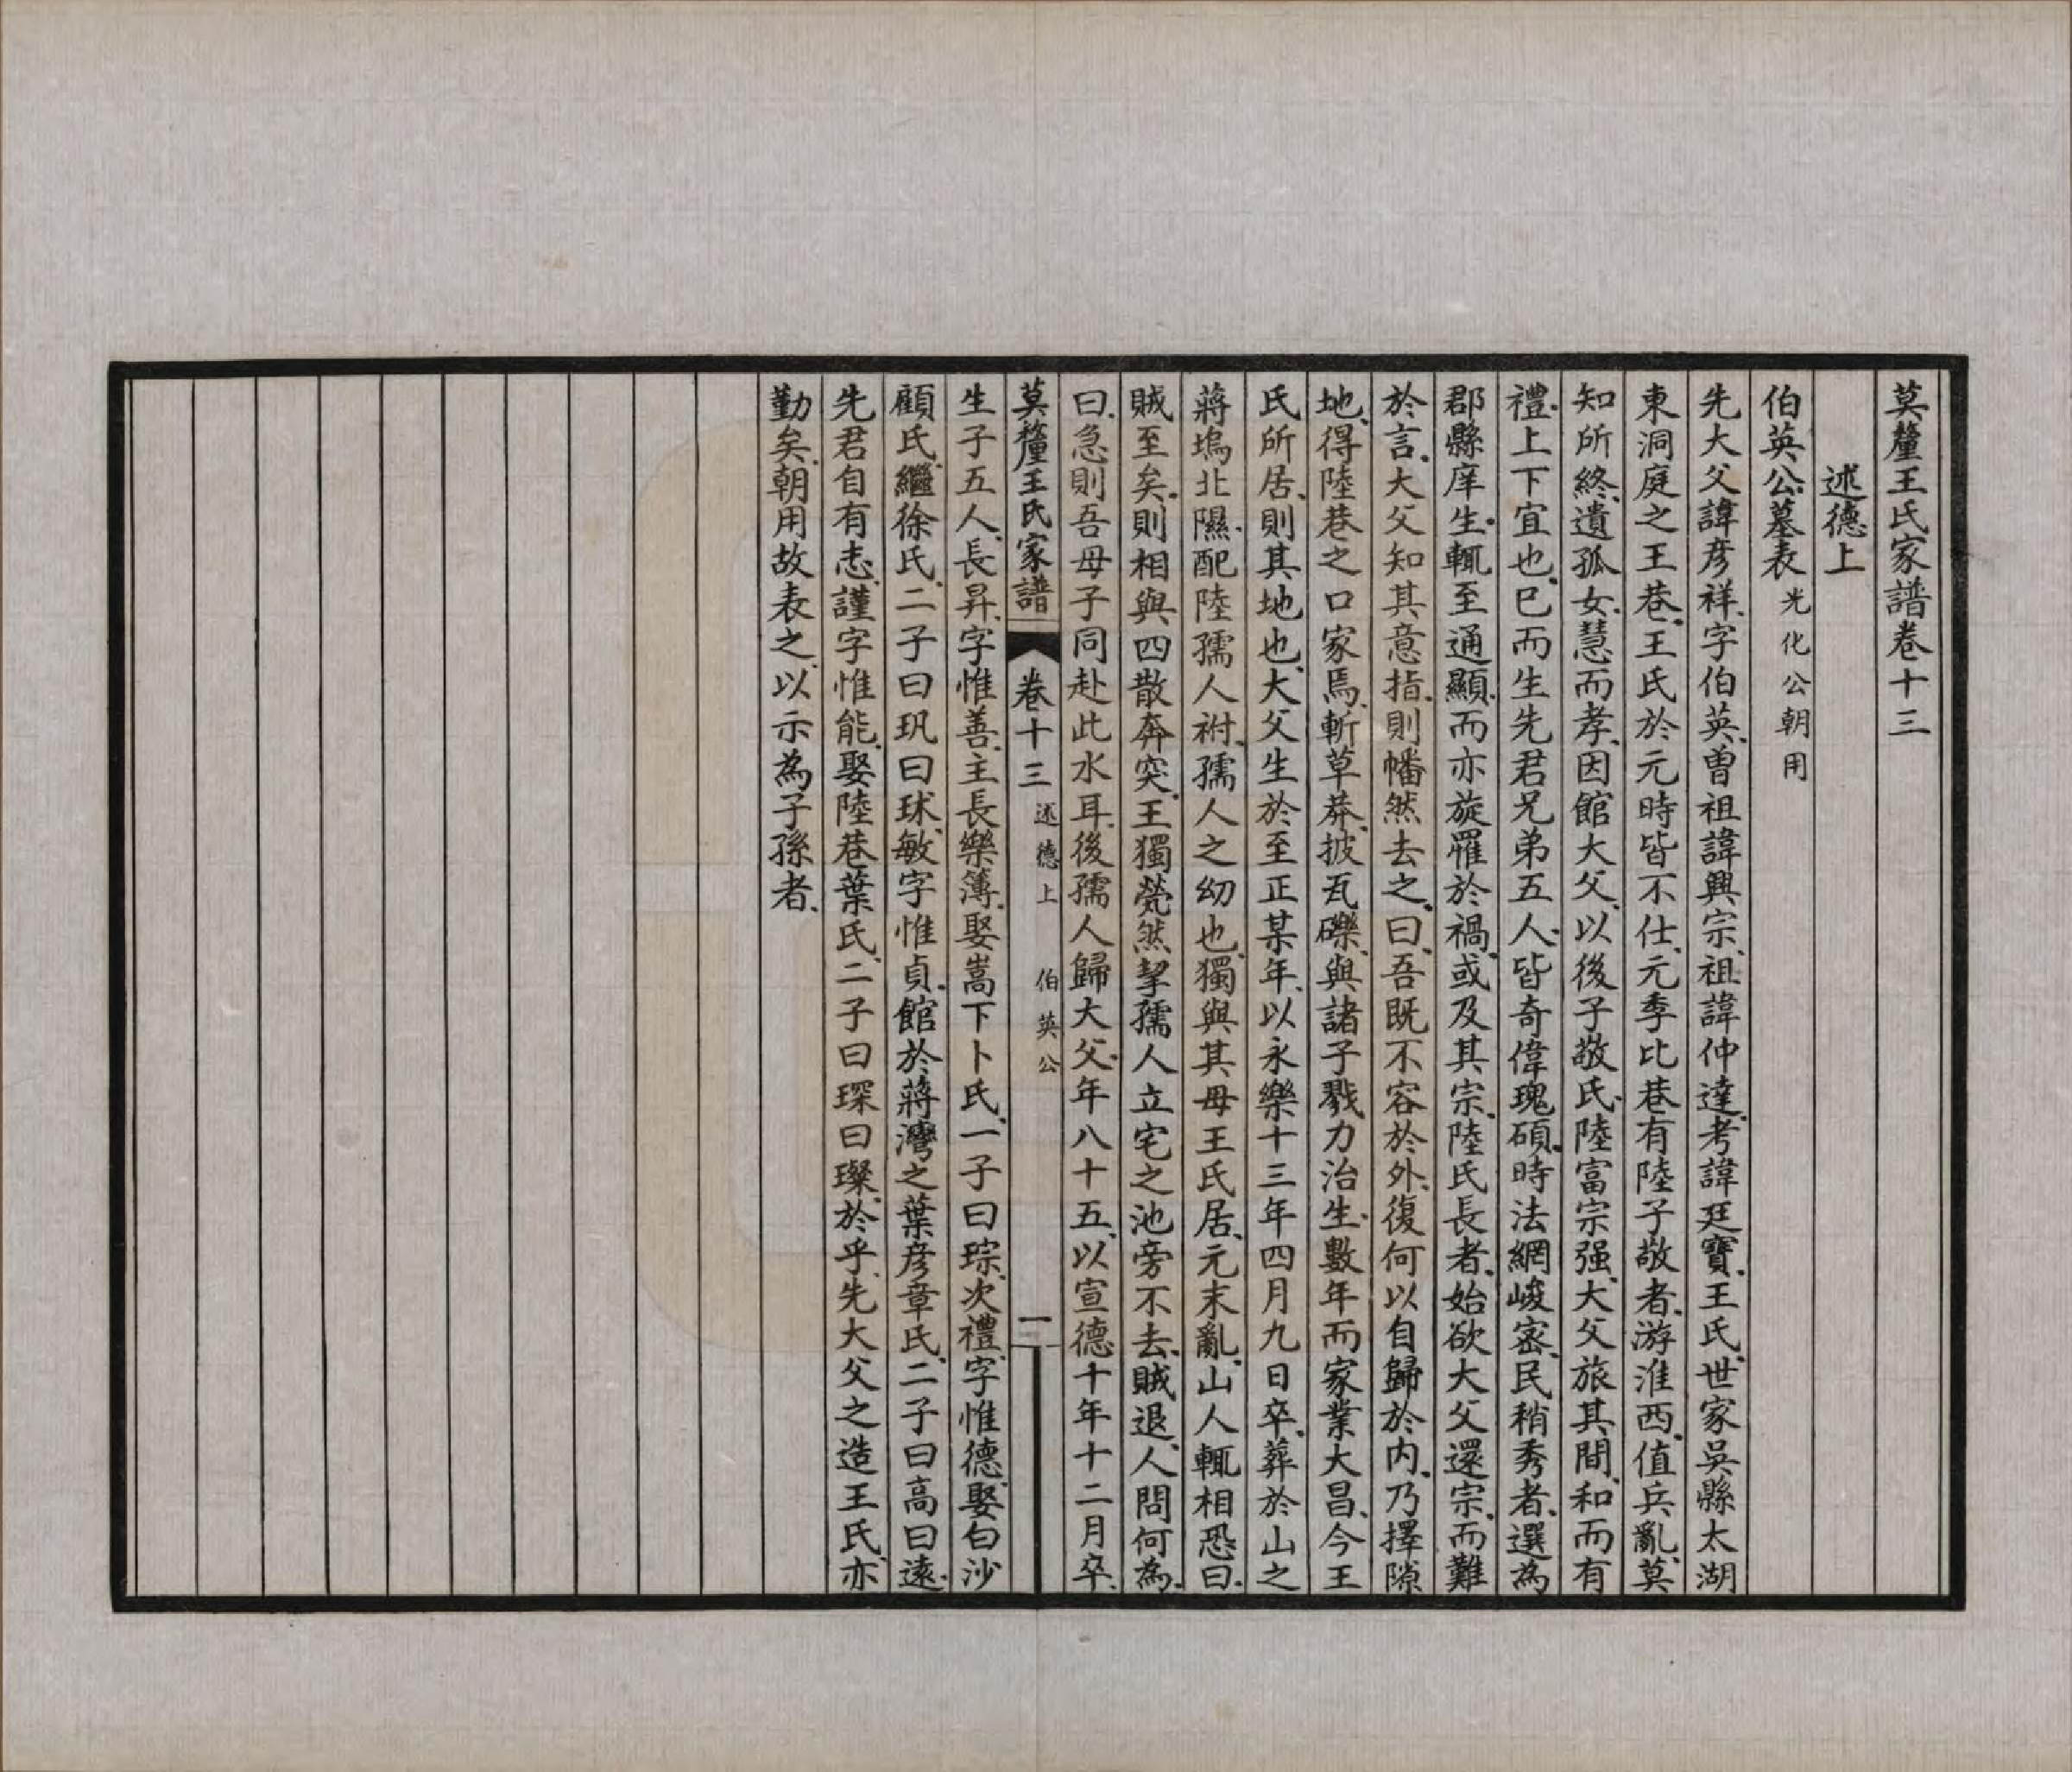 莫釐王氏家譜卷十三
述德上
伯英公墓表光化公朝用
先大父諱彥祥、字伯英、曾祖諱興宗、祖諱仲達、考諱廷寶、王氏、世家吳縣太湖
東洞庭之王巷、王氏於元時皆不仕、元季比巷有陸子敬者、游淮西、值兵亂、莫
知所終、遺孤女、慧而孝、因館大父、以後子敬氏、陸富宗强、大父旅其間、和而有
禮、上下宜也、巳而生先君兄弟五人、皆奇偉瑰碩、時法網峻密、民稍秀者、選為
郡縣庠生、輒至通顯、而亦旋罹於禍、或及其宗、陸氏長者、始欲大父還宗、而難
於言、大父知其意指、則幡然去之、曰、吾既不容於外、復何以自歸於内、乃擇隙
地、得陸巷之口家焉、斬草莽、披瓦礫、與諸子戮力治生、數年而家業大昌、今王
氏所居、則其地也、大父生於至正某年、以永樂十三年四月九日卒、葬於山之
蔣塢北隰、配陸孺人祔、孺人之幼也、獨與其母王氏居、元末亂、山人輒相恐曰、
賊至矣、則相與四散奔突、王獨煢然挈孺人立宅之池旁不去、賊退、人問何為、
曰、急則吾母子同赴此水耳、後孺人歸大父、年八十五、以宣德十年十二月卒、
莫釐王氏家譜 卷十三 述德上 伯英公 一
生子五人、長昇、字惟善、主長樂簿、娶嵩下卜氏、一子曰琮、次禮、字惟德、娶白沙
顧氏、繼徐氏、二子曰玑曰球、敏字惟貞、館於蔣灣之葉彥章氏、二子曰高曰遠、
先君自有志、謹字惟能、娶陸巷葉氏、二子曰琛曰璨、於乎、先大父之造王氏、亦
勤矣、朝用故表之、以示為子孫者、